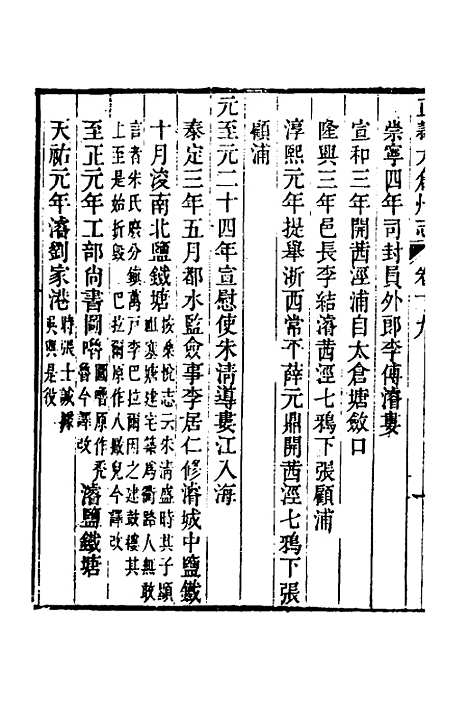 崇寧四年司封員外郎李傳濬婁
宣和三年開茜涇浦自太倉塘斂口
隆興三年邑長李結濬茜涇七鴉下張顧浦
淳熙元年提舉浙西常平薛元鼎開茜涇七鴉下張
顧浦
元至元二十四年宣慰使朱淸導婁江入海
泰定三年五月都水監僉事李居仁修濬城中鹽鐵
十月浚南北鹽鐵塘
按桑悅志云朱淸盛時其子顯
血塞塘建宅築爲衢路人無敢
言者朱氏廢分鎮萬戸李巴拉爾因之建鼓樓其
上至是始折毀 巴拉爾原作八兒今譯改
至正元年工部尚書圖嚕
圖嚕原作禿
魯今譯改
濬鹽鐵塘
天祐元年濬劉家港
時張士誠據
吳興是役